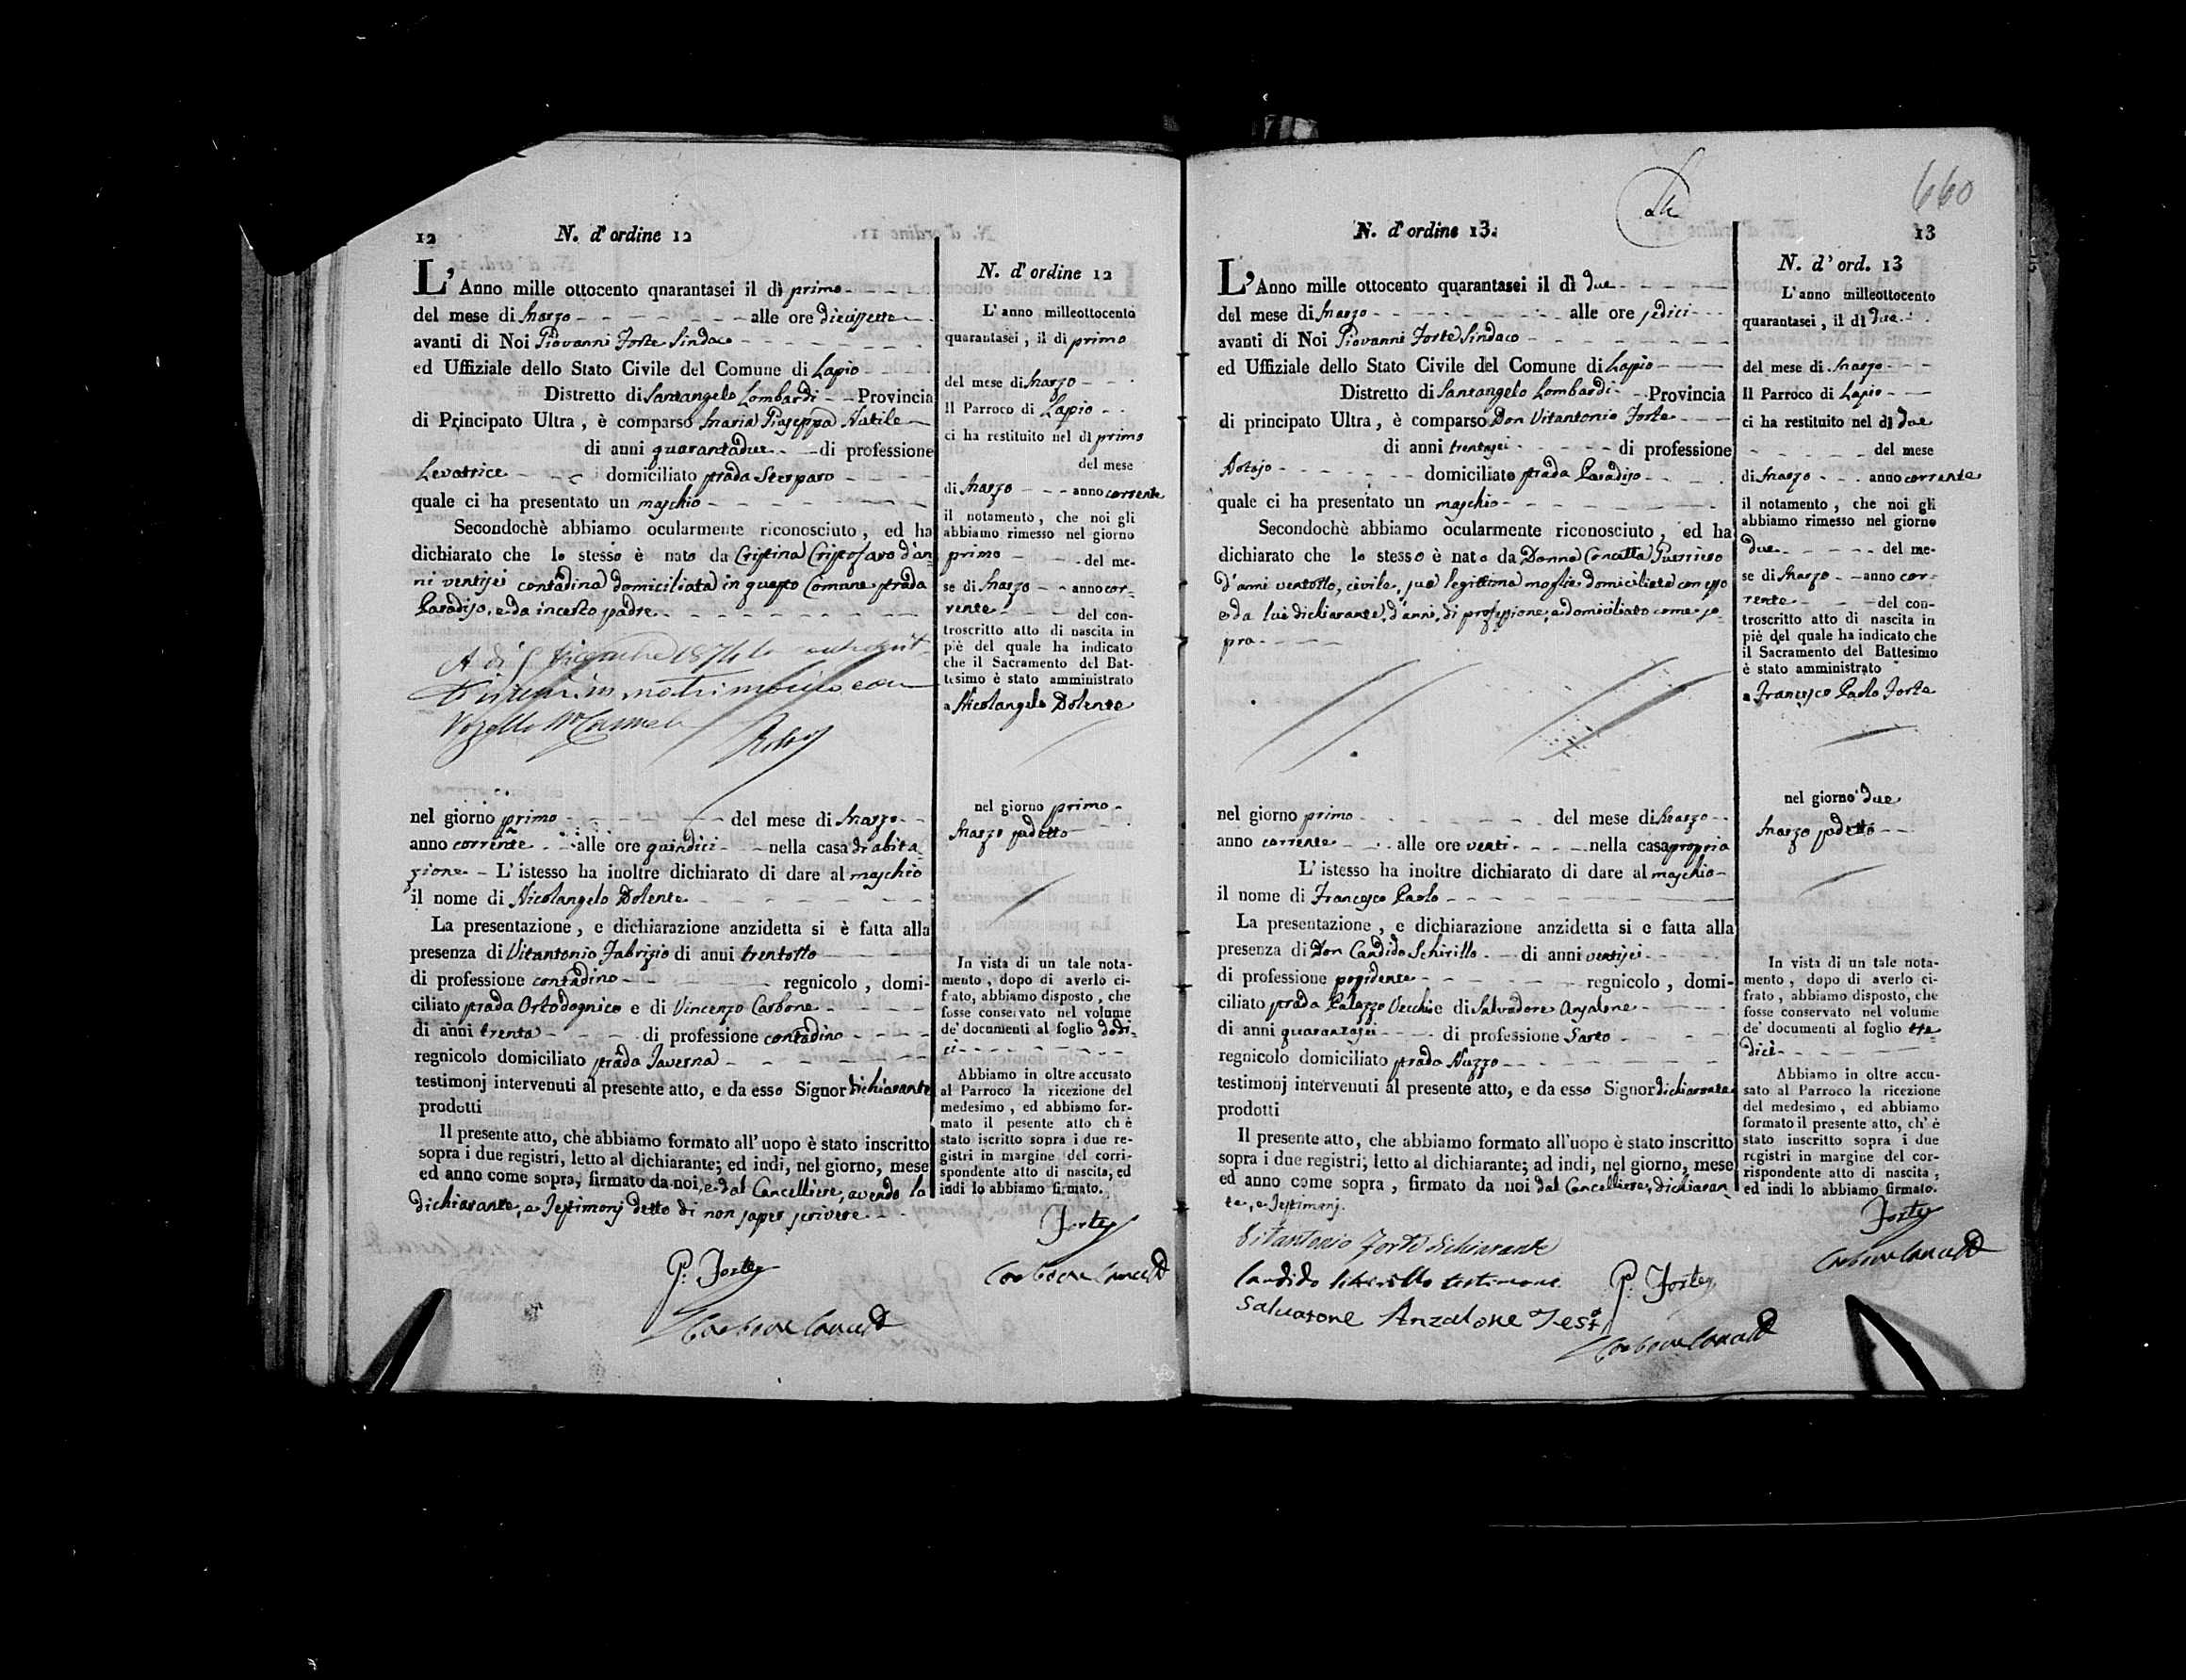 12
N. d' ordine 12
L' Anno mille ottocento quarantasei il dì primo
del mese di Marzo alle ore diecissette
avanti di Noi Giovanni Forte Sindaco
ed Uffiziale dello Stato Civile del Comune di Lapio
Distretto di Santangelo Lombardi Provincia
di Principato Ultra, è comparso Maria Giuseppa Nutile
di anni quarantadue di professione
Levatrice domiciliato strada Sterparo
quale ci ha presentato un maschio
Secondochè abbiamo ocularmente riconosciuto, ed ha
dichiarato che lo stesso è nato da Cristina Cristofaro d'an
ni ventisei contadina domiciliata in questo Comune strada
Paradiso, e da incerto padre
A dì 1874
matrimonio con
nel giorno primo del mese di Marzo
anno corrente alle ore quindici nella casa di abita
zione L' istesso ha inoltre dichiarato di dare al maschio
il nome di Nicolangelo Dolente
La presentazione, e dichiarazione anzidetta si è fatta alla
presenza di Vitantonio Fabrizio di anni trentotto
di professione contadino regnicolo, domi-
ciliato strada Ortodognico e di Vincenzo Carbone
di anni trenta di professione contadino
regnicolo domiciliato strada Taverna
testimonj intervenuti al presente atto, e da esso Signor dichiarante
prodotti
Il presente atto, che abbiamo formato all' uopo è stato inscritto
sopra i due registri, letto al dichiarante; ed indi, nel giorno, mese
ed anno come sopra, firmato da noi, e dal Cancelliere, avendo la
dichiarante, e Testimonj detto di non saper scrivere
G. Forte
Carbone Canc.
N. d' ordine 12
L' anno milleottocento
quarantasei, il dì primo
del mese di Marzo
Il Parroco di Lapio
ci ha restituito nel dì primo
del mese
di Marzo anno corrente
il notamento, che noi gli
abbiamo rimesso nel giorno
primo del me-
se di Marzo anno cor-
rente del con-
troscritto atto di nascita in
piè del quale ha indicato
che il Sacramento del Bat-
tesimo è stato amministrato
a Nicolangelo Dolente
nel giorno primo
Marzo sudetto
In vista di un tale nota-
mento, dopo di averlo ci-
frato, abbiamo disposto, che
fosse conservato nel volume
de' documenti al foglio dodi-
ci
Abbiamo in oltre accusato
al Parroco la ricezione del
medesimo, ed abbiamo for-
mato il pesente atto ch è
stato iscritto sopra i due re-
gistri in margine del corri-
spondente atto di nascita, ed
indi lo abbiamo firmato.
Forte
Carbone Canc.
660
N. d' ordine 13.
13
L' Anno mille ottocento quarantasei il dì due
del mese di Marzo alle ore sedici
avanti di Noi Giovanni Forte Sindaco
ed Uffiziale dello Stato Civile del Comune di Lapio
Distretto di Santangelo Lombardi Provincia
di principato Ultra, è comparso Don Vitantonio Forte
di anni trentasei di professione
Notajo domiciliato strada Paradiso
quale ci ha presentato un maschio
Secondochè abbiamo ocularmente riconosciuto, ed ha
dichiarato che lo stesso è nato da Donna Concetta Guerriero
d'anni ventotto, civile, sua legittima moglie domiciliata con esso
e da lui dichiarante, d'anni, di professione, e domiciliato come so
pra
nel giorno primo del mese di Marzo
anno corrente alle ore venti nella casa propria
L' istesso ha inoltre dichiarato di dare al maschio
il nome di Francesco Paolo
La presentazione, e dichiarazione anzidetta si e fatta alla
presenza di Don Candido Schirillo di anni ventisei
di professione possidente regnicolo, domi-
ciliato strada Palazzo Vecchio e di Salvadore Anzalone
di anni quarantasei di professione Sarto
regnicolo domiciliato strada Nuzzo
testimonj intervenuti al presente atto, e da esso Signor dichiarante
prodotti
Il presente atto, che abbiamo formato all'uopo è stato inscritto
sopra i due registri; letto al dichiarante; ad indi, nel giorno, mese
ed anno come sopra, firmato da noi dal Cancelliere, dichiaran
te, e Testimonj.
Vitantonio Forte dichiarante
Candido Schirillo testimone
Salvatore Anzalone Test.
G. Forte
Carbone Canc.
N. d' ord. 13
L' anno milleottocento
quarantasei, il dì due
del mese di Marzo
Il Parroco di Lapio
ci ha restituito nel dì due
del mese
di Marzo anno corrente
il notamento, che noi gli
abbiamo rimesso nel giorno
due del me-
se di Marzo anno cor-
rente del con-
troscritto atto di nascita in
piè del quale ha indicato che
il Sacramento del Battesimo
è stato amministrato
a Francesco Paolo Forte
nel giorno due
Marzo sudetto
In vista di un tale nota-
mento, dopo di averlo ci-
frato, abbiamo disposto, che
fosse conservato nel volume
de' documenti al foglio tre
dici
Abbiamo in oltre accu-
sato al Parroco la ricezione
del medesimo, ed abbiamo
formato il presente atto, ch' è
stato inscritto sopra i due
registri in margine del cor-
rispondente atto di nascita,
ed indi lo abbiamo firmato.
Forte
Carbone Canc.